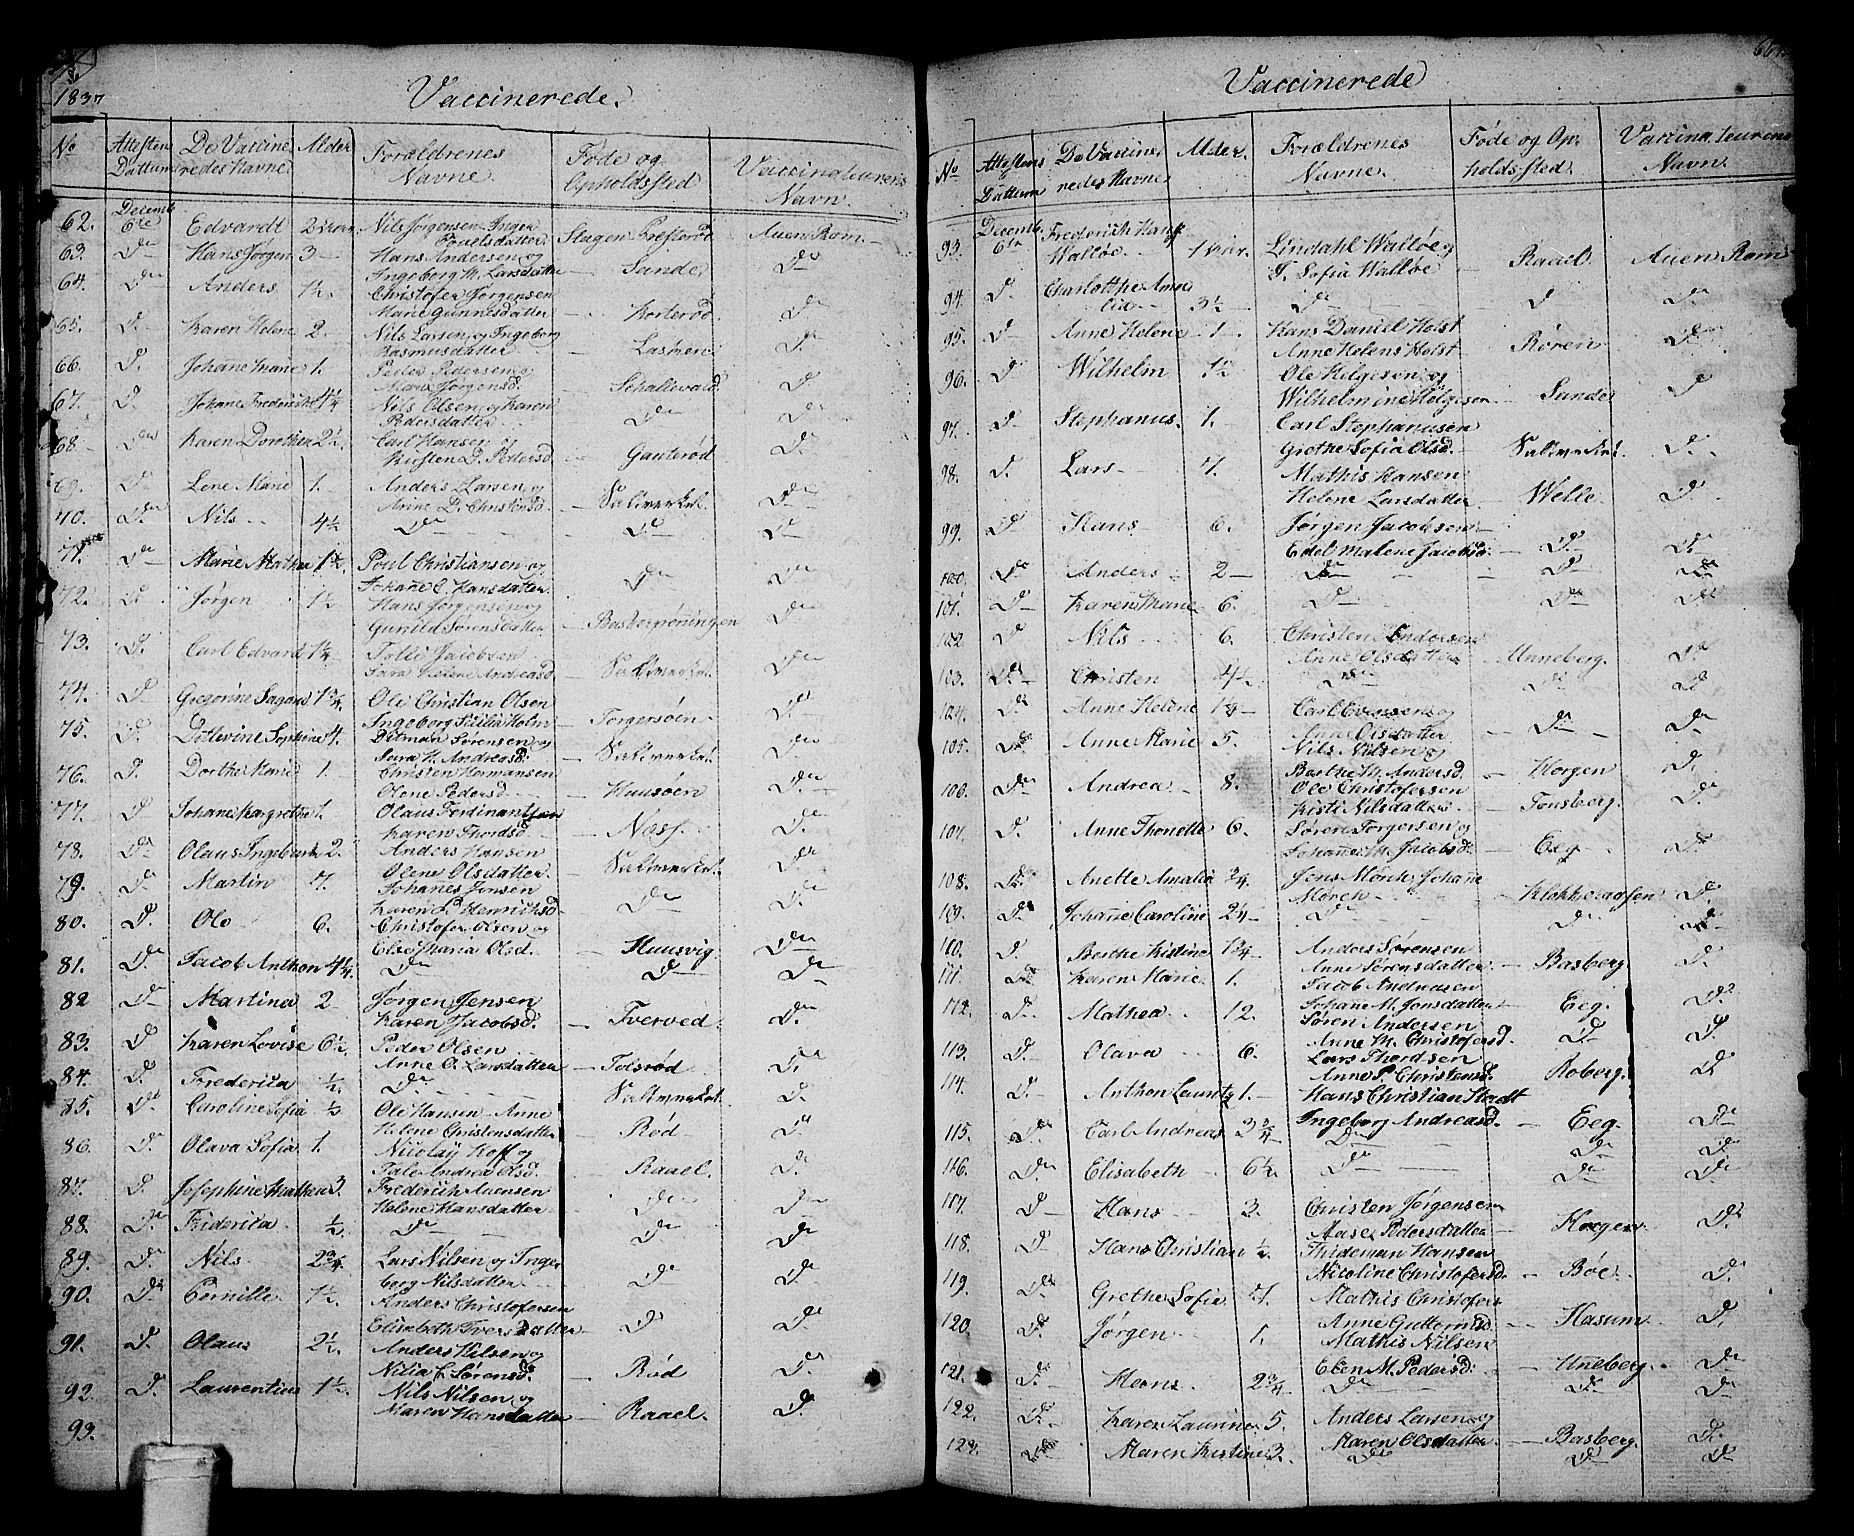 1837
Vaccinerede.
No Attesten Dattum De Vaccineredes Navne Alder Forældrenes Navne. Føde og Opholdssted Vaccinateurens Navn
62. Decemb 6te Edvardt Nils Jørgensen Inger
Povelsdatter
63. Do Hans Jørgen 3 Hans Andersen og
Ingeborg M. Larsdatter Sande Do
64. Do Anders 1½. Christofer Jørgensen
Marie Gunnesdatter Korterød Do
65. D. Karen Helene 2. Nils Larsen og Ingeborg
Rasmusdatter D.
66. D. Johanne Marie 1. Peder Pedersen og
Maren Jørgensd. D
67. D. Johane Frederikke 1¼ Nils Olsen og Karen
Pedersdatter Do D.
68. Do Karen Dorthea 2½. Carl Hansen og
Kirsten D. Pedersd. Gauterød D.
69. D Lene Marie 1. Anders Larsen og
Anne D. Christensd. Do
70. Do Nils 4½ Do Do Do
71. Do Marie Mathea 1½. Poul Christiansen og
Johane C. Hansdatter Do Do
72. D. Jørgen 1½ Hans Jørgensen og
Gunild Sørensdatter Do
73. D. Carl Edvard 1¼ Tolle Jacobsen
Sara Helene Andreasd Do
74. D. Gregorine 1¾ Ole Christian Olsen
Ingeborg Sicilia Holm Torgersøen D.
75. D. Detlevine Sophine 4. Ditman Sørensen og
Sara H. Andreasd. Do
76. D. Dorthe Marie 1. Christen Hermansen
Olene Pedersd. Huusøen Do
77. D Johane Margrethe 1. Olaus Ferdinantsen
Karen Thordsd. Næss. D.
78. Do Olaus Ingebart 2. Anders Hansen
Olene Olsdatter D.
79. D. Martin 7. Johannes Jensen
Karen P. Henrichsd. Do D.
80. D. Ole 6. Christofer Olsen og
Else Maria Olsd. Huusvig Do
81. D. Jacob Anthon 4¼. Do Do Do
82 Do Martina 2 Jørgen Jensen
Karen Jacobsd. Tverved. D.
83. D Karen Lovise 6½. Peder Olsen
Anne O. Larsdatter Tolsrød D.
84. D Frederica ½. Do D.
85. D. Caroline Sofia ½ Ole Hansen Anne
Helene Christensdatter Rød D
86. D. Olava Sofia 1. Nicolay Hoff og
Tale Andrea Olsd. Raael. D.
87. D. Josephine Mathea 3. Frederich Auensen
Helene Hansdatter Do Do
88. D. Friderica ½. Do Do Do
89. D. Nils 2¾. Lars Nilsen og Inge
borg Nilsdatter Do Do
90. D. Pernille 1½. Anders Christofersen
Elisabeth Iversdatter D D.
91. D. Olaus 2½. Anders Nilsen og
Sørensd. Rød D
92. D. Laurentius 1½. Nils Nilsen og
Maren Hansdatter Raael. D.
93.
Vaccinerede
No Attestens Dattum De Vaccineredes Navne Alder. Forældrenes Navne. Føde og Opholdssted. Vaccinateurens Navn.
93. Decemb. 6te Frederich Hans
Walløe Lindahl Walløe og
J. Sofia Walløe Raael Auen Rom
94. D. Charlotthe Ama
lia 3½ Do D Do
95. D Anne Helene 1. Hans Daniel Holst
Anne Helene Holst Røren D
96. D Wilhelm 1½ Ole Helgesen og
Wilhelmine Helgesen Sande D
97. D. Stephanus. 1. Carl Stephanusen
Grethe Sofia Olsd. D.
98. D. Lars 7. Mathis Hansen
Helene Larsdatter Welle D
99. D Hans 6. Jørgen Jacobsen
Edel Malene Jacobsd. D. D.
100. D Anders 2 Do D Do
101. D Karen Marie 6. Do Do Do
102. D Nils 6. Christen Andersen
Anne Olsdatter Unneberg. D.
103. Do Christen 4½ Do Do D
104. Do Anne Helene 1¼ Carl Evensen og
Anne Olsdatter Do Do
105. D Anne Marie 5. Nils Nilsen og
Berthe M. Andersd. Horgen D.
106. Do Andrea 8. Ole Christofersen
Kisti Nilsdatter Tønsberg. D.
107. D. Anne Thonette 6. Søren Torgersen og
Johanne M. Jacobsd. Eeg D.
108. D. Anette Amalia ¾. Jens Mørch Johane
Møren D.
109. D. Johanne Caroline 2¼ D. D.
110. D. Berthe Kistine 1¾. Anders Sørensen
Anne Sørensdatter Basberg. D
111. D. Karen Marie 1. Jacob Andreasen
Johane M. Jonsdatter Eeg. D.
112. D. Mathea 12. Søren Andersen
Anne M. Christofersd. D. D.
113. D. Olava 6. Lars Thordsen
Anne P. Christensd. Roberg. D
114. D. Anthon Lauritz 1. Hans Christian
Ingeborg Andreasd. Eeg. D
115. D. Carl Andreas 3¾. Do Do Do
116. D. Elisabeth 6½. Do Do Do
117. D Hans 3. Christen Jørgensen
Aase Pedersdatter Horgen D.
118. D Hans Christian ½. Thideman Hansen
Nicoline Christofersd. Bøe. D.
119. D. Grethe Sofia 7. Mathis Christofers
Anne Guttormsd Hasum D.
120. D. Jørgen 1. Mathis Nilsen
Elen M. Pedersd. Unneberg. D
121. D. Hans 2¾. Do D. D
122. D. Karen Laurine 5. Anders Larsen og
Maren Olsdatter Basberg. D.
Maren Kistine 3. Do D D